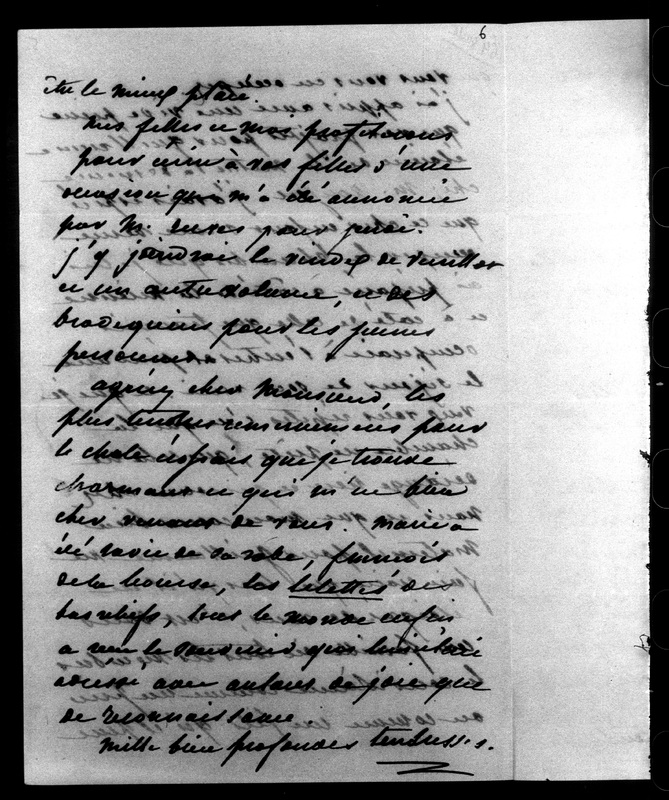 6
être le mieux placé.
Mes filles et moi profiterons
pour écrire à vos filles d'une
occasion qui m'a été annoncée
par M. pour jeudi.
j'y joindrai le de
et un autre volume, et des
brodequins pour les jeunes
personnes.
agréez cher Monsieur, les
plus tendres remerciements pour
le châle écossais que je trouve
charmant et qui m'est bien
cher venant de vous. Marie a
été ravie de sa robe, françois
de la bourse, las bélettes des
bas reliefs, tout le monde enfin
a reçu le souvenir qui lui était
adressé avec autant de joie que
de reconnaissance.
Mille bien profondes tendresses.